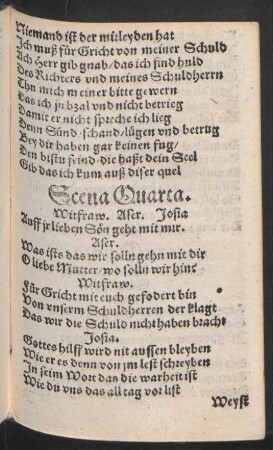 Niemand ist der mitleyden hat
Ich muß für Gricht von meiner Schuld
Ach Herr gib gnad / das ich find huld
Des Richters vnd meines Schuldherrn
Thu mich meiner bitte gewern
Das ich jn bzal vnd nicht betrieg
Damit er nicht spreche ich lieg
Denn Sünd / schand / lügen vnd betrug
Bey dir haben gar keinen fug /
Den bistu feind / die haßt dein Seel
Gib das ich kum auß diser quel
Scena Quarta.
Witfraw. Aser. Josia
Auff jr lieben Sön geht mit mir.
Aser.
Was ists das wir solln gehn mit dir
O liebe Mutter / wo solln wir hin?
Witfraw.
Für Gricht mit euch gefodert bin
Von vnserm Schuldherren der klagt
Das wir die Schuld nicht haben bracht
Josia.
Gottes hilff wird nit aussen bleyben
Wie er es denn von jm lest schreyben
In seim Wort das die warheit ist
Wie du vns das all tag vor list
Weyst